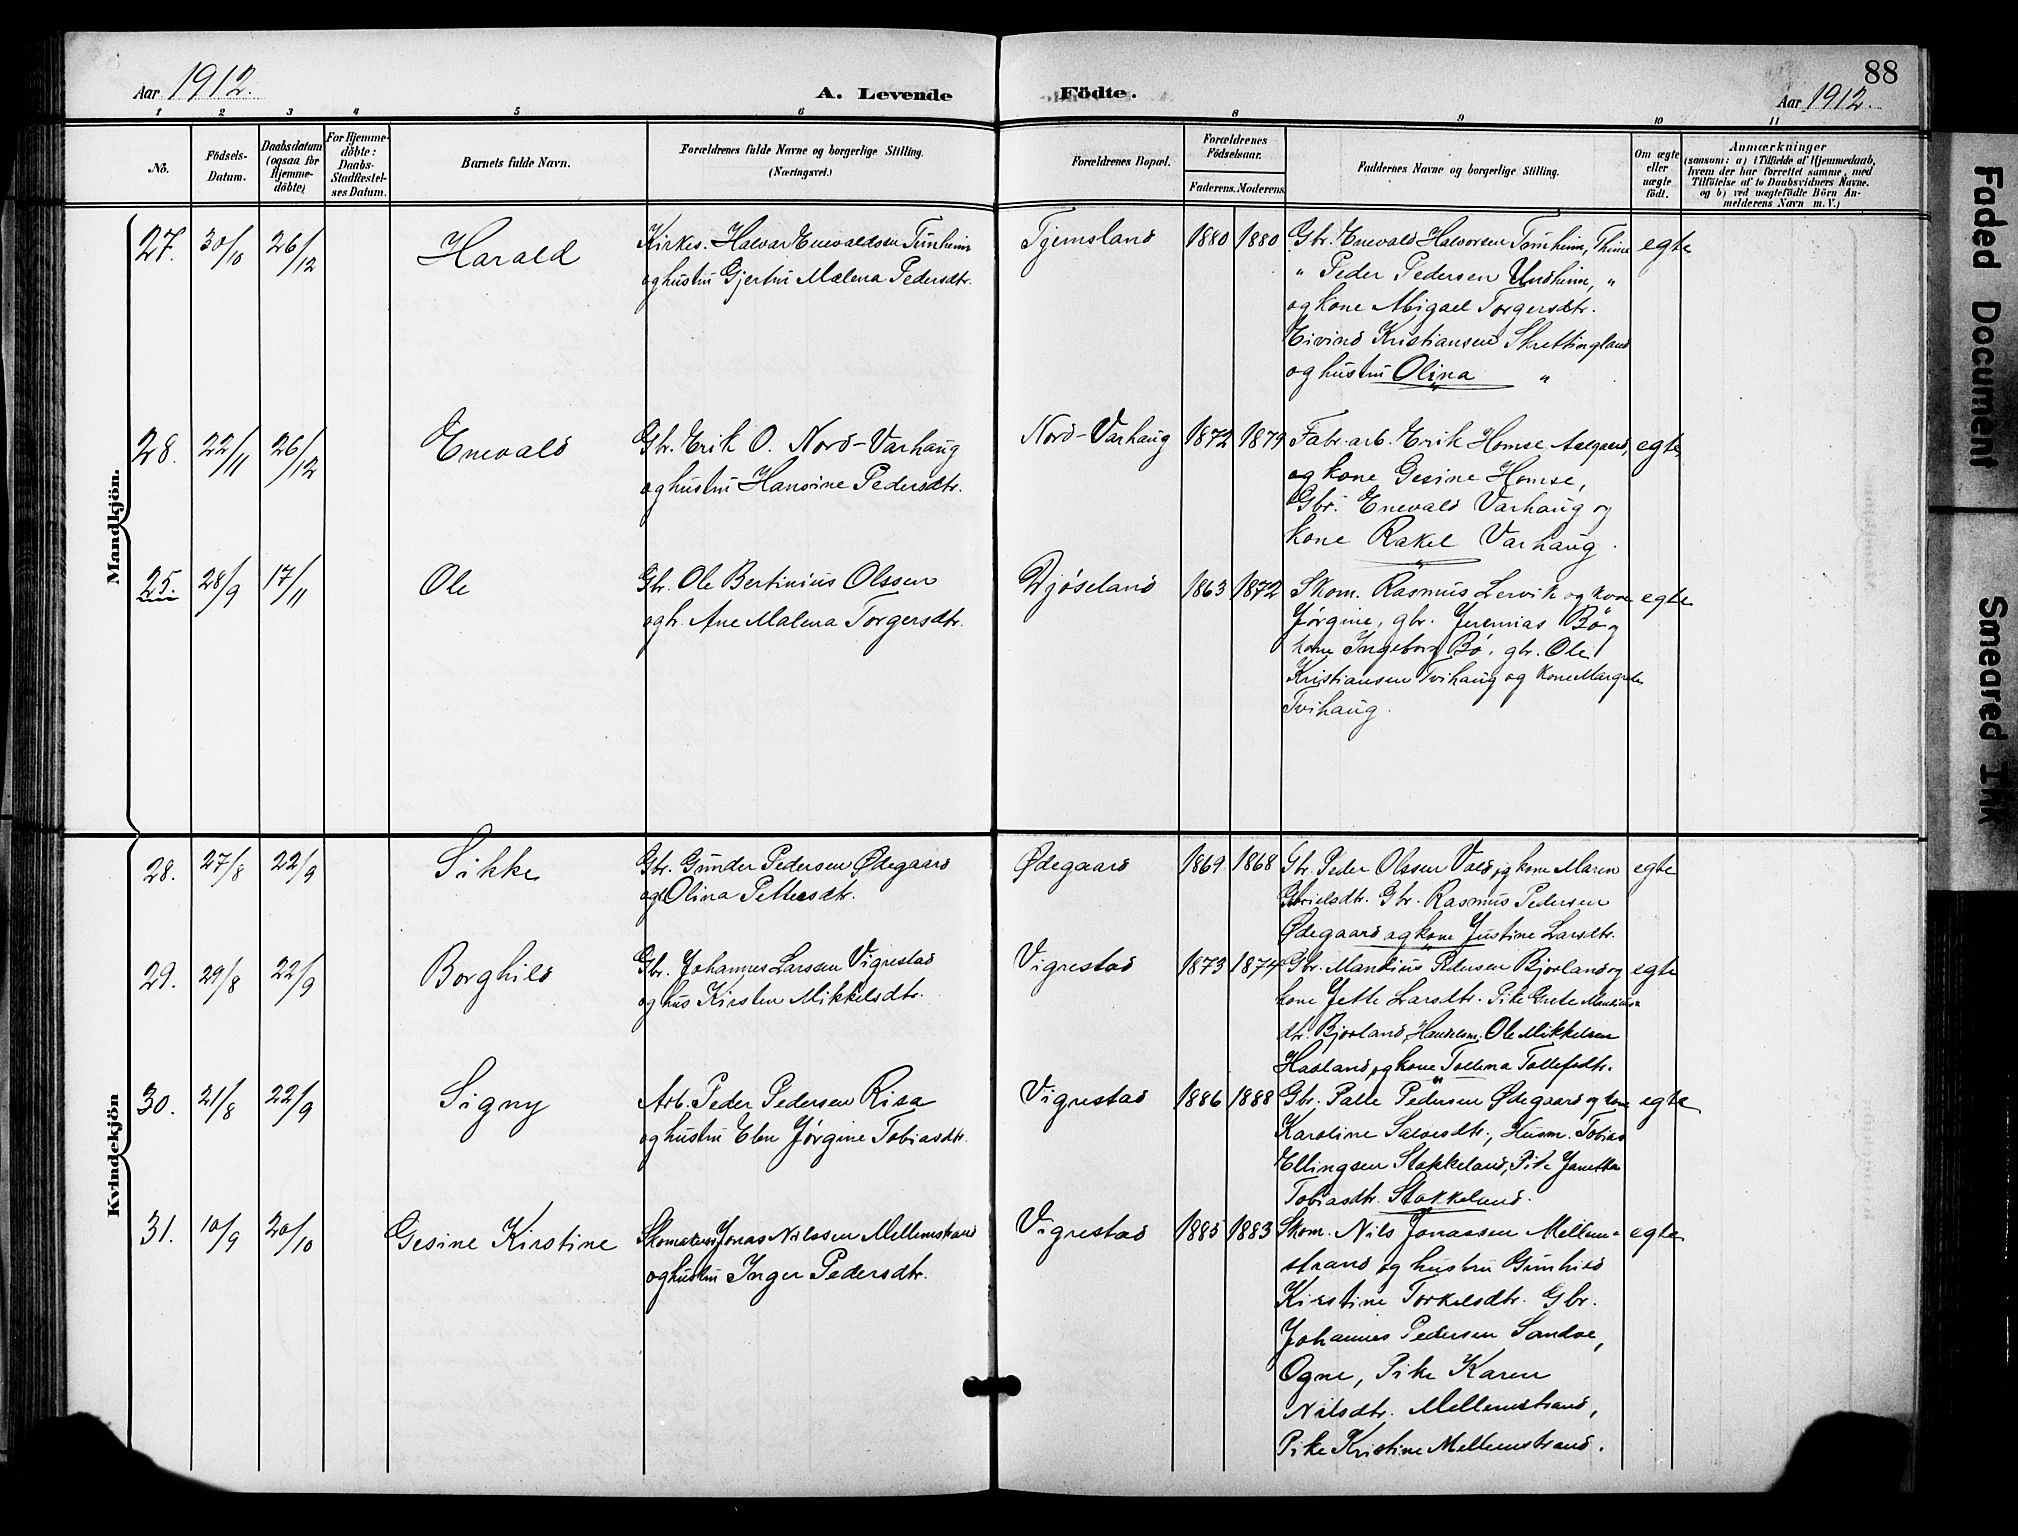 88
Aar 1912.
A. Levende
Födte.
Aar 1912.
1 2 3 4 5 6 8 9 10 11
No.
Födsels-
Datum.
Daabsdatum
(ogsaa for
Hjemme-
döbte)
For Hjemme-
döbte:
Daabs-
Stadfæstel-
ses Datum.
Barnets fulde Navn.
Forældrenes fulde Navne og borgerlige Stilling.
(Næringsvei.)
Forældrenes Bopæl.
Forældrenes
Födselsaar.
Faderens. Moderens.
Faddernes Navne og borgerlige Stilling.
Om ægte
eller
uægte
födt.
Anmærkninger
(saasom: a) i Tilfælde af Hjemmedaab,
hvem der har forrettet samme, med
Tilföielse af to Daabsvidners Navne.
og b) ved uægtefödte Börn An-
melderens Navn m. V.)
Mandkjön.
27. 30/10 26/12 Harald
Kirkes. Halvar Enevaldsen Tunheim
og hustru Gjertru Malena Pedersdtr.
Tjemsland 1880 1880
Gbr. Enevald Halvorsen Tunheim, Thime
" Peder Pedersen Undheim, "
og kone Abigael Torgersdtr.
Eivind Kristiansen Skrettingland
og hustru Olina "
egte
28. 22/11 26/12 Enevald
Gbr. Erik O. Nord-Varhaug
og hustru Hansine Pedersdtr.
Nord-Varhaug 1872 1879
Fabr.arb. Erik Homse Aalgaard,
og kone Gesine Homse,
Gbr. Enevald Varhaug og
kone Rakel Varhaug.
egte
25. 28/9 17/11 Ole
Gbr. Ole Bertinius Olssen
og h. Ane Malena Torgersdtr.
Djöseland 1863 1872
Skom. Rasmus Lervik og kone
Jørgine, gbr. Jeremias Bö og
kone Ingeborg Bö, gbr. Ole
Kristiansen Tvihaug og kone Margrete
Tvihaug.
egte
Kvindekjön
28. 27/8 22/9 Sikke
Gbr. Gunder Pedersen Ødegaard
og Olina Pettersdtr.
Ødegaard 1869 1868
Gbr. Peder Olssen Vald og kone Maren
Gbrielsdtr. Gbr. Rasmus Pedersen
Ødegaard og kone Justine Larsdtr.
egte
29. 29/8 22/9 Borghild
Gbr. Johannes Larssen Vigrestad
og hus Kirsten Mikkelsdtr.
Vigrestad 1873 1874
Gbr. Mandius Pedersen Bjorland og
kone Jette Larsdtr. Pike Grete Mandius-
dtr. Bjorland, Handelsm. Ole Mikkelsen
Haaland og kone Tollena Tollefsdtr.
egte
30. 21/8 22/9 Signy
Arb. Peder Pedersen Risa
og hustru Elen Jørgine Tobiasdtr.
Vigrestad 1886 1888
Gbr. Palle Pedersen Ødegaard og kone
Karoline Salvesdtr., Husm. Tobias
Ellingsen Stokkeland, Pike Janetta
Tobiasdtr. Stokkeland.
egte
31. 10/9 20/10 Gesine Kirstine
Skomakers Jonas Nilssen Mellemstrand
og hustru Inger Pedersdtr.
Vigrestad 1885 1883
Skom. Nils Jonassen Mellem-
strand og hustru Gunhild
Kirstine Torkelsdtr. Gbr.
Johannes Pedersen Sandve,
Ogne, Pike Karen
Nilsdtr. Mellemstrand,
Pike Kristine Mellemstrand.
egte
Faded Document
Smeared Ink